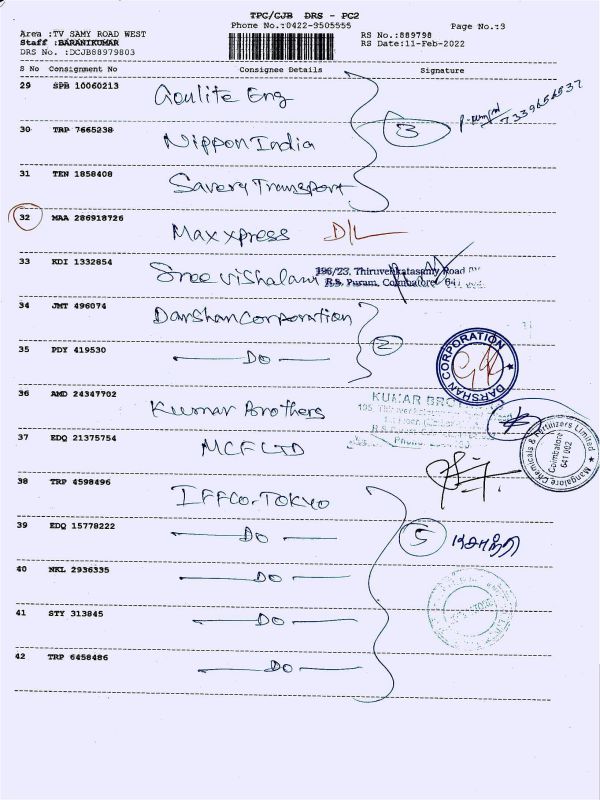 TPC/CJB DRS - PC2
Phone No.:0422-9505555 Page No.:3
Area :TV SAMY ROAD WEST RS No.:889798
Staff :BARANIKUMAR RS Date:11-Feb-2022
DRS No. :DCJB88979803
S No Consignment No Consignee Details Signature
29 SPB 10060213 Goulite Eng
3 7339656537
30 TRP 7665238 Nippon India
31 TEN 1858408 Savery Transport
32 MAA 286918726 Maxxpress D/L
33 KDI 1332854 Sree Vishalam 196/23, Thiruvenkatasamy Road
R.S. Puram, Coimbatore 641
34 JMT 496074 Darshan Corporation
2
35 PDY 419530 Do
DARSHAN CORPORATION
36 AMD 24347702 Kumar Brothers
KUMAR BRO
195, Thiruven
Phone
37 EDQ 21375754 MCF LTD
Mangalore Chemicals & Fertilizers Limited
Coimbatore
641 002
38 TRP 4598496 IFFCO. TOKYO
39 EDQ 15778222 Do
5
40 NKL 2936335 Do
41 STY 313845 Do
42 TRP 6458486 Do